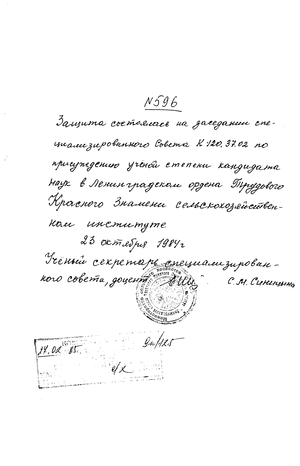 №596
Защита состоялась на заседании спе-
циализированного Совета К 120.37.02 по
присуждению учёной степени кандидата
наук в Ленинградском ордена Трудового
Красного Знамени сельскохозяйствен-
ном институте
23 октября 1984г
Учёный секретарь специализирован-
ного совета, доцент
С.М. Синицына